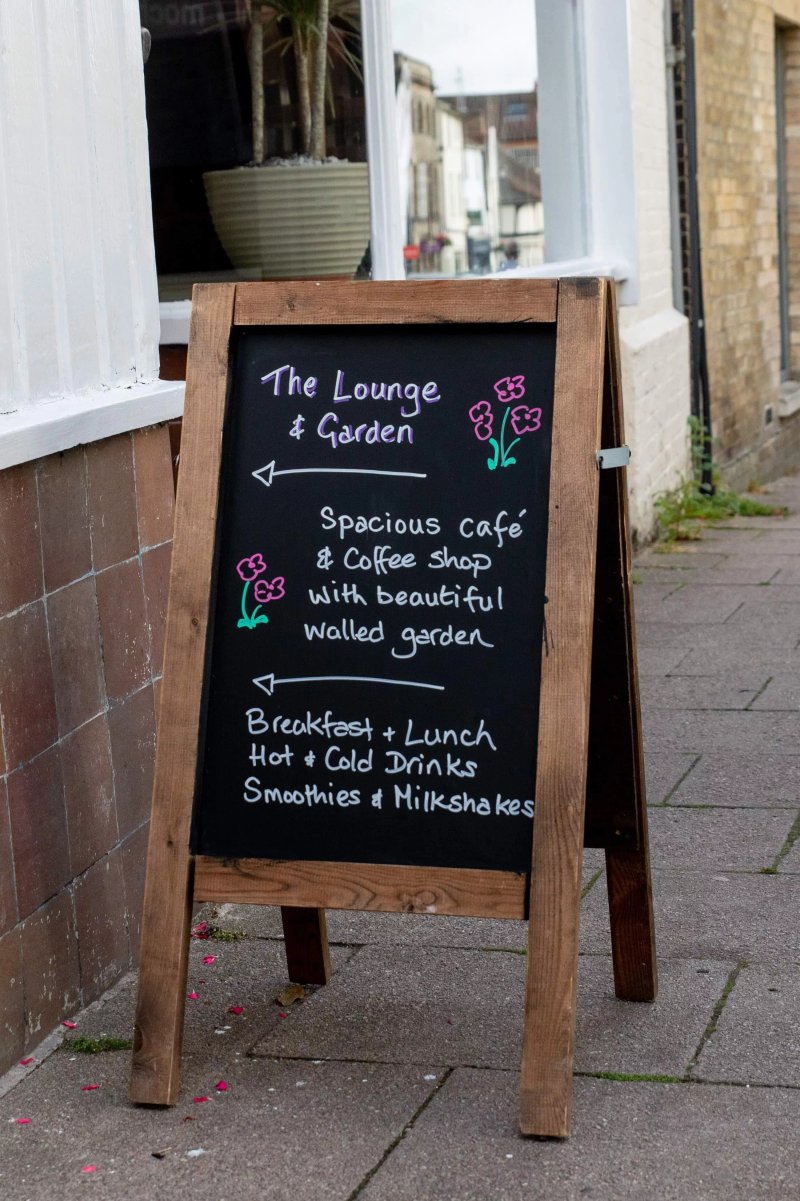 The Lounge
& Garden
Spacious café
& Coffee shop
with beautiful
walled garden
Breakfast + Lunch
Hot & Cold Drinks
Smoothies & Milkshakes